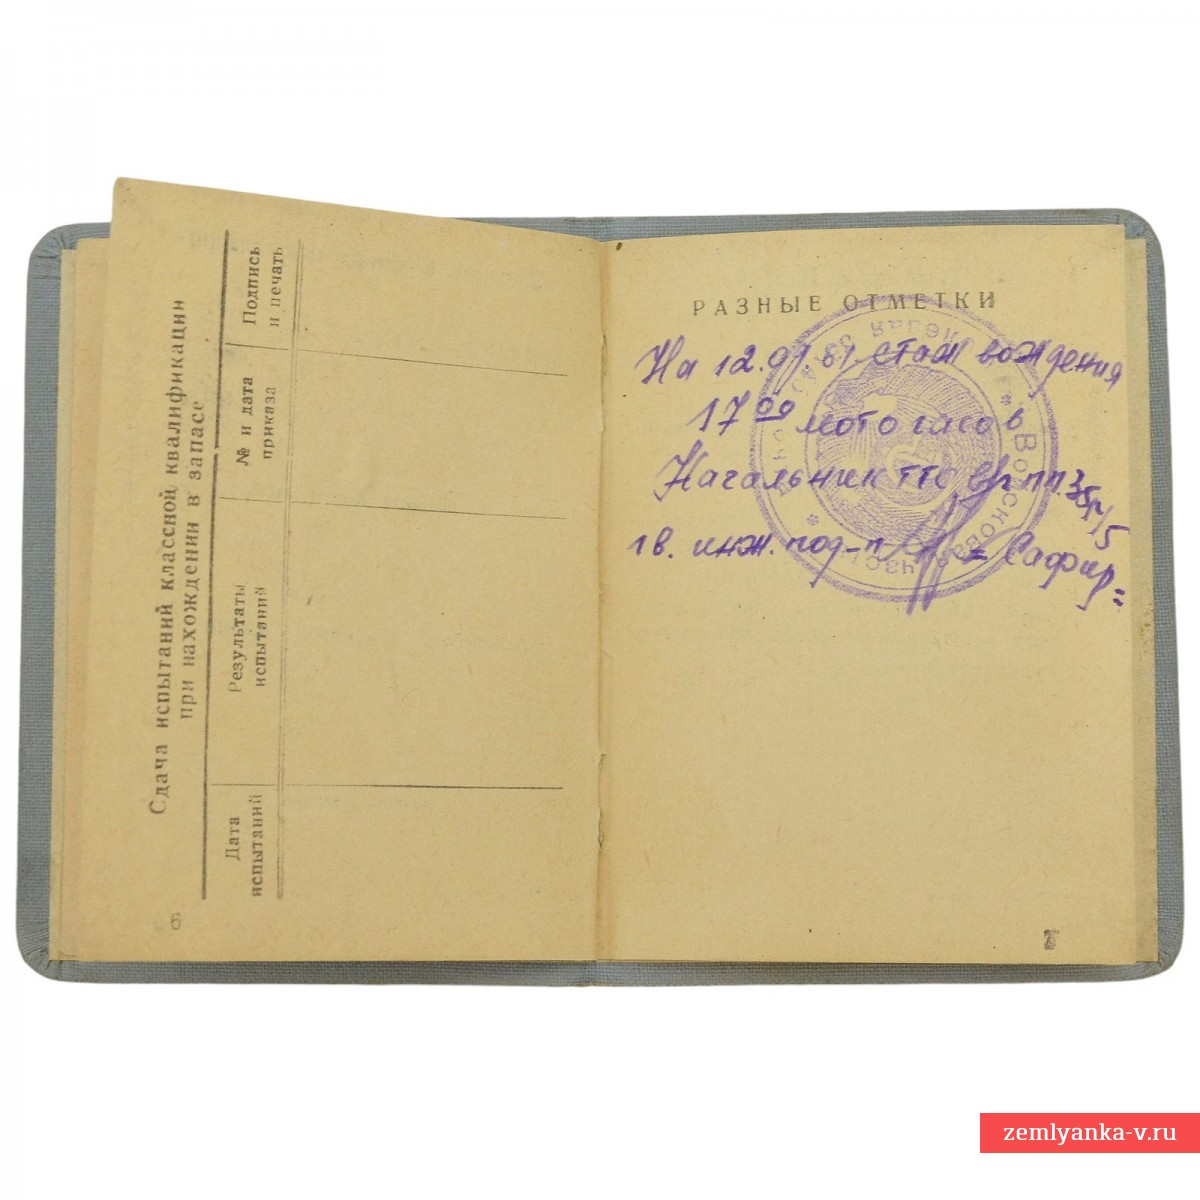 Сдача испытаний классной квалификации
при нахождении в запасе
Дата испытаний
Результаты испытаний
№ и дата приказа
Подпись и печать
6
РАЗНЫЕ ОТМЕТКИ
На 12.09.81 стаж вождения
17 00 мото часов
Начальник ТТС
гв. инж. под-п Сафир
Войсковая часть
7
zemlyanka-v.ru